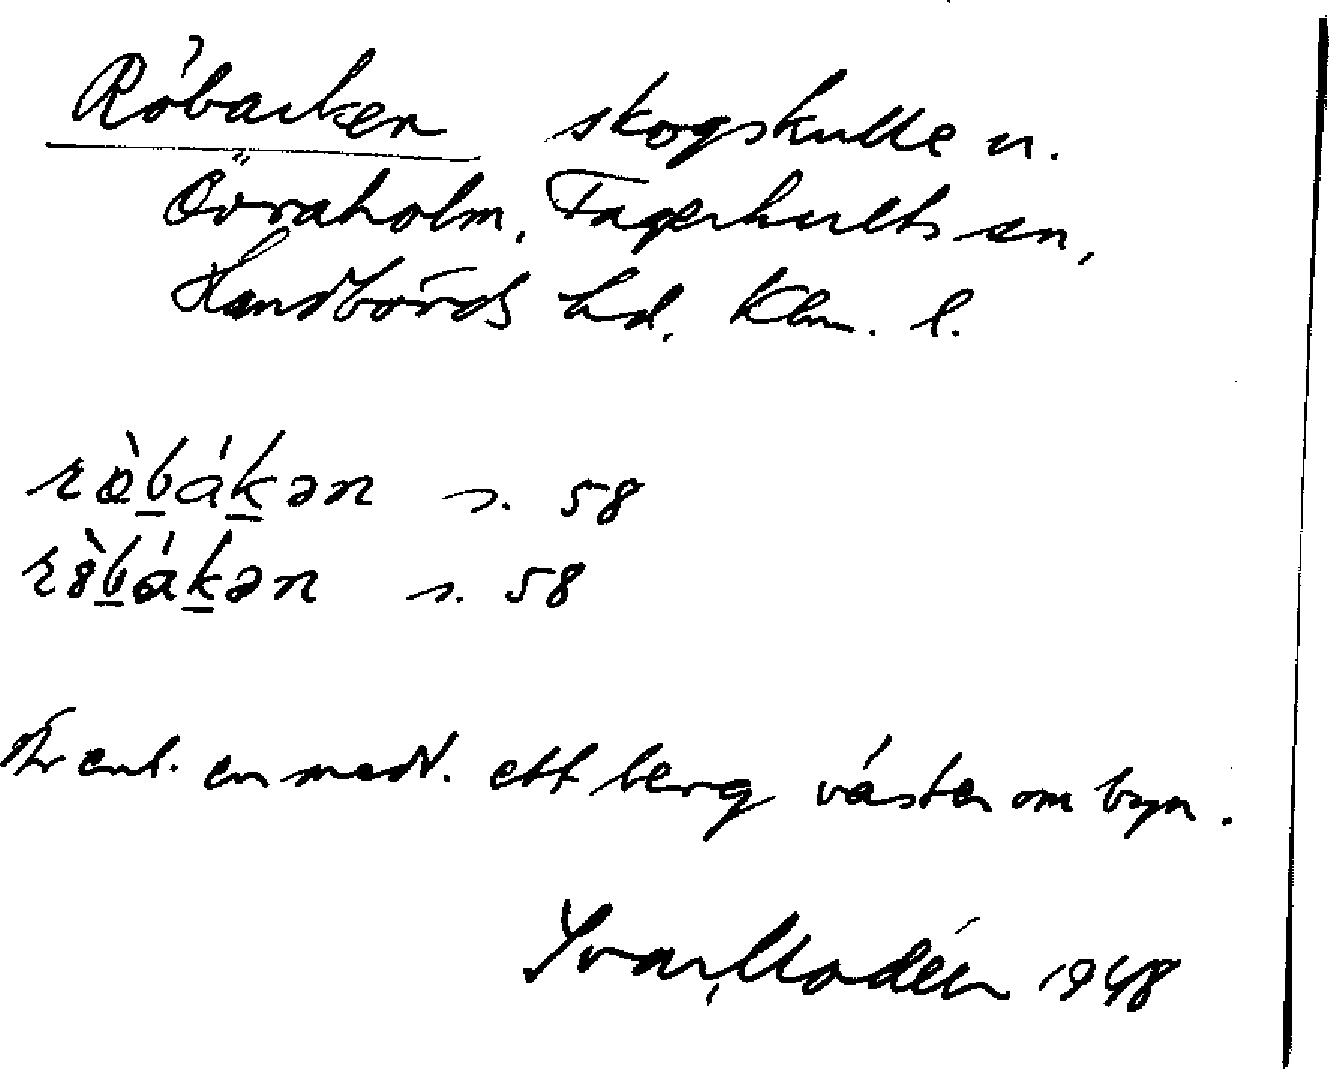 Röbacken skogskulle n.
Övraholm, Fagerhults sn,
Handbörds hd. Klm. l.
rò̱báḵən s. 58
rö̀ḇáḵən s. 58
enl. en medd. ett berg väster om byn.
Ivar Modéer 1948